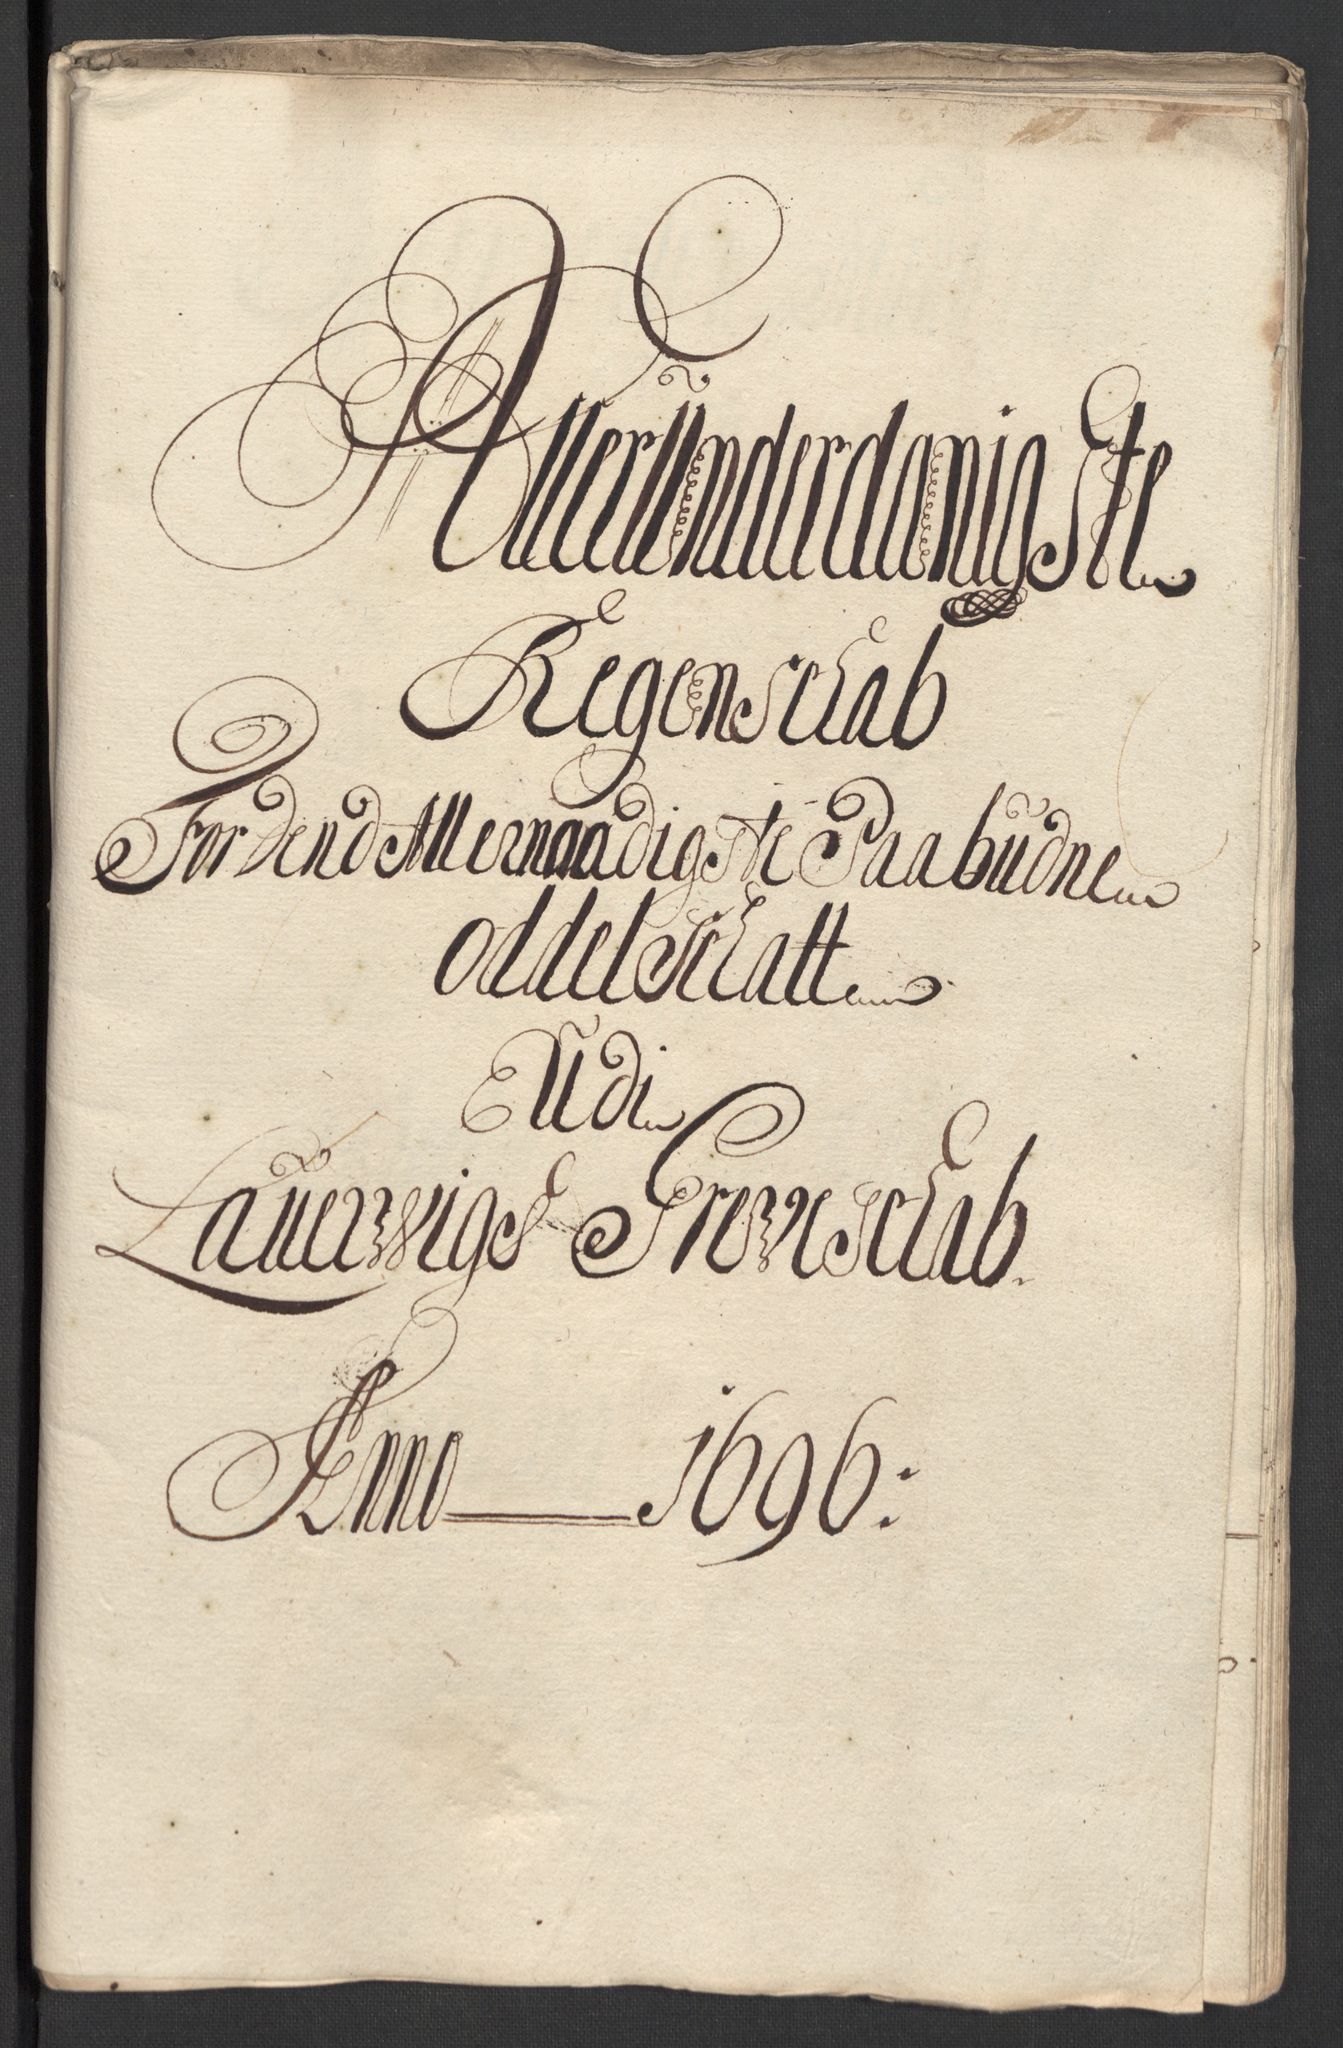 AllerUnderdanigste
Regenschab
For dend Allernaadigste Paabudne
Oddelschatt
Udi
Lauervigs Greveschab.
Anno 1696: